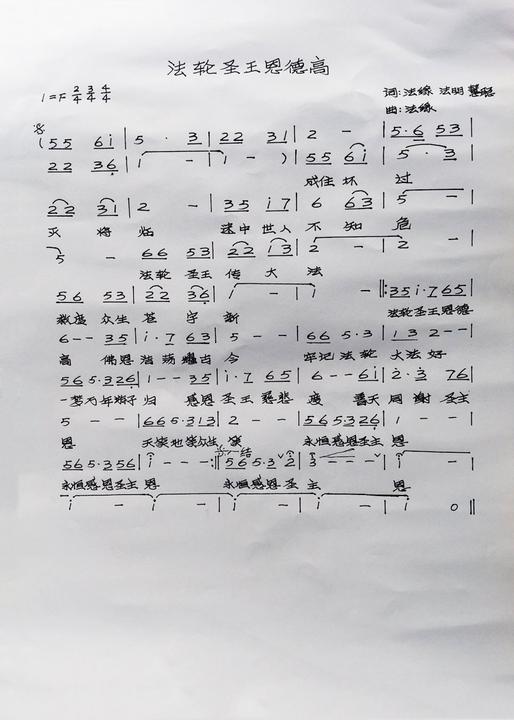 法轮圣王恩德高
1=F 2/4 3/4 4/4
词:法缘 法明 慧聪
曲:法缘
(55 6i | 5 · 3 | 22 31 | 2 - | 5·6 53 |
22 36 | 1 - | 1 - ) | 55 6i | 5 · 3 |
成住坏 过
22 31 | 2 - | 35 i7 | 6 63 | 5 - |
灭 将临 迷中世人 不 知 危
5 - | 66 53 | 22 i3 | 2 - | 2 - |
法轮 圣王 传 大 法
56 53 | 22 36 | i - | i - ‖:35 i·7 65 |
救度 众生 苍 宇 新 法轮圣王恩德
6--35 | i·7 63 | 5-- | 66 5·3 | 1 3 2-- |
高 佛恩浩荡 古 今 牢记法轮 大法好
565·326 | 1--35 | i·7 65 | 6--6i | 2·3 76 |
一梦 年 归 感恩圣王慈悲 度 天同谢圣主
5-- | 665·313 | 2-- | 565·326 | i-- |
恩 天 地 众生 永恒感恩圣主 恩
565·356 | i--- :‖ 565·3 2 | 3--- | i - |
结
永恒感恩圣主 恩 永恒感恩圣 主 恩
i - | i - | i - | i - | i 0 ‖